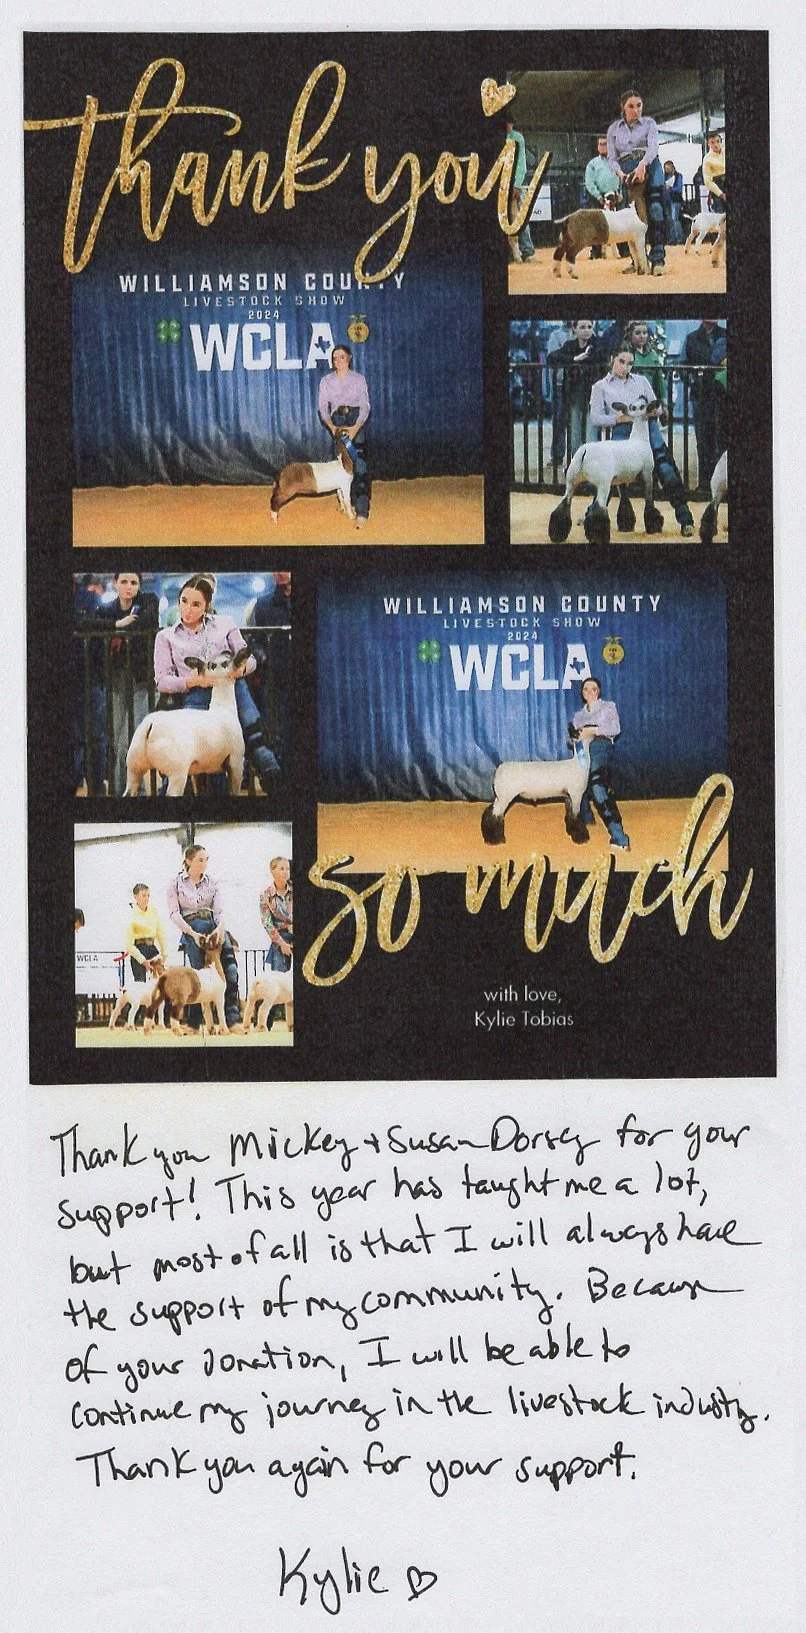 thank you
WILLIAMSON COUNTY
LIVESTOCK SHOW
2024
WCLA
WILLIAMSON COUNTY
LIVESTOCK SHOW
2024
WCLA
WCLA
so much
with love,
Kylie Tobias
Thank you Mickey + Susan Dorsey for your
support! This year has taught me a lot,
but most of all is that I will always have
the support of my community. Because
of your donation, I will be able to
continue my journey in the livestock industry.
Thank you again for your support.
Kylie ♡